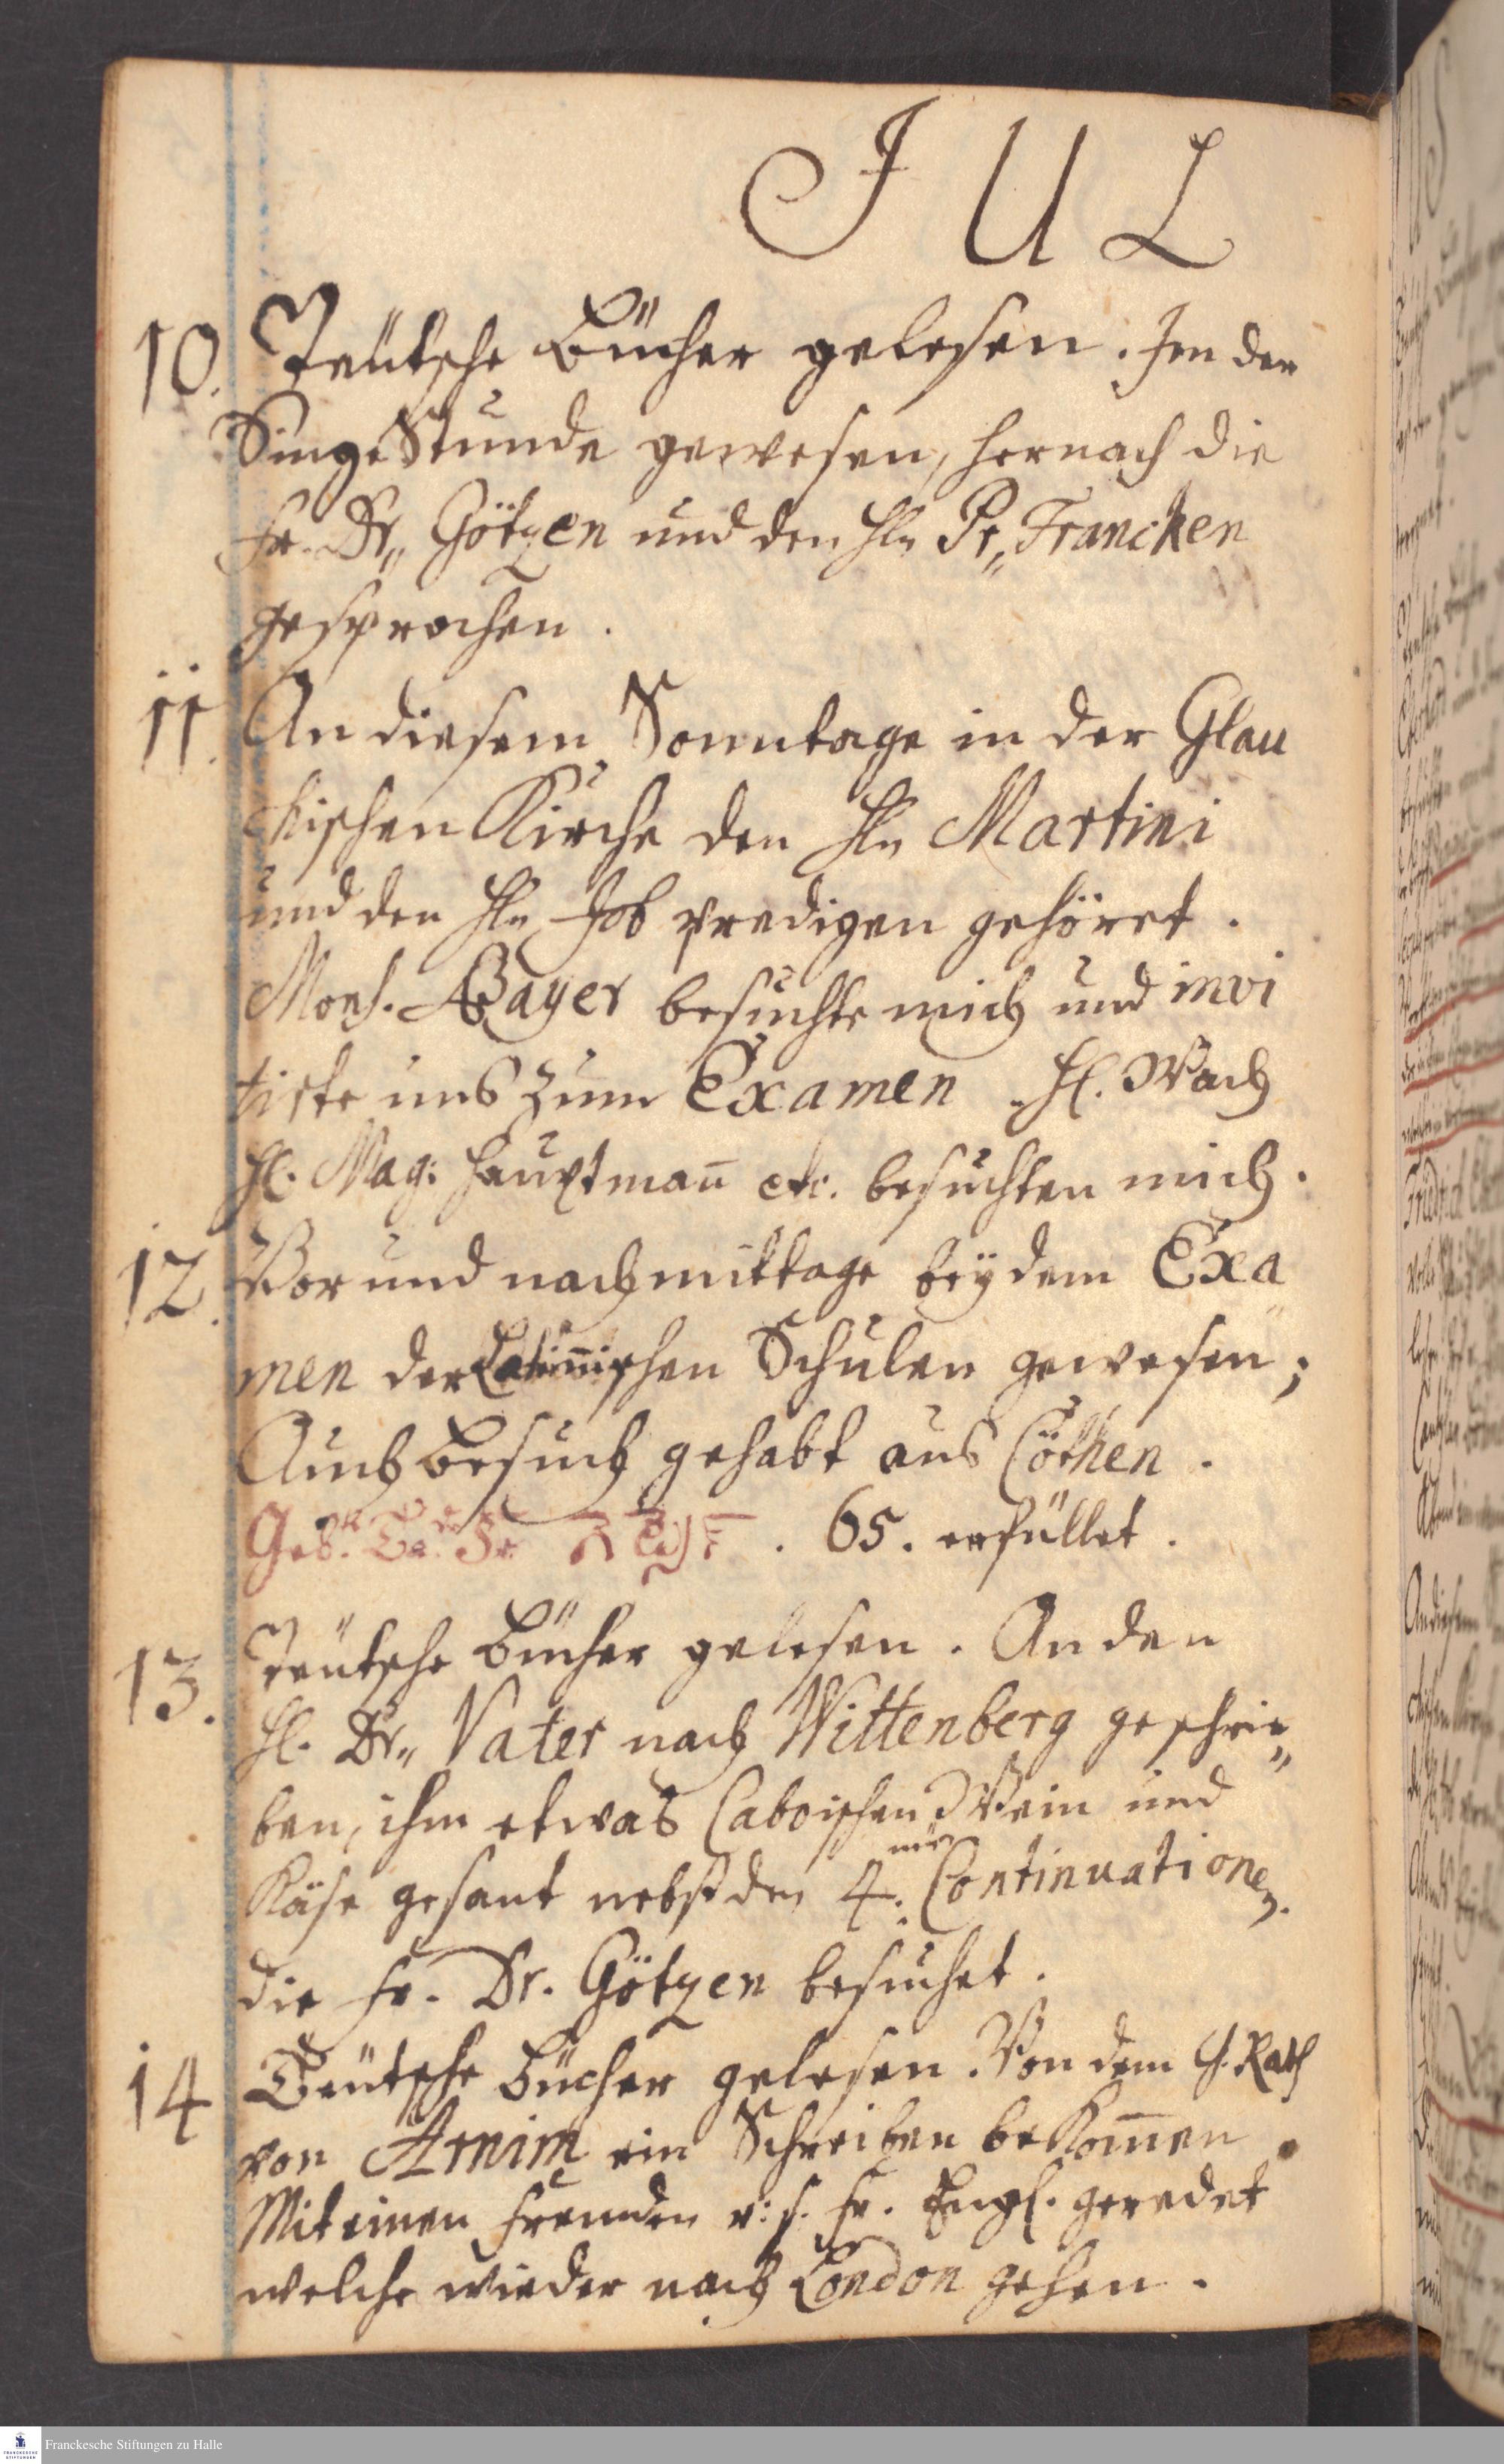 J U L
10. Teütsche Bücher gelesen. In der
SingeStunde gewesen, hernach die
Fr. Dr„ Götzen und den Hln Pr„ Francken
gesprochen.
11. An diesem Sonntage in der Glau
chischen Kirche den Hln Martini
und den Hln Job predigen gehöret.
Mons. Bayer besuchte mich und invi
tirte uns zum Examen. Hl. Wach
Hl. Mag: Hauptman̄ etc. besuchten mich.
12. Vor und nachmittage beÿ dem Exa
men der Latein̄ischen Schulen gewesen;
Auch besuch gehabt aus Cöthen.
. 65. erfüllet.
13. Teütsche Bücher gelesen. An den
Hl. Dr„ Vater nach Wittenberg geschrie„
ben, ihm etwas Wein und
Käse gesant nebst den 4. Continuationen.
die Fr. Dr. Götzen besuchet.
14 Teütsche Bücher gelesen. Von dem H. Rath
von Arnim ein Schreiben bekom̄en.
Mit einen frembden geredet
welche wieder nach London gehen.
Franckesche Stiftungen zu Halle